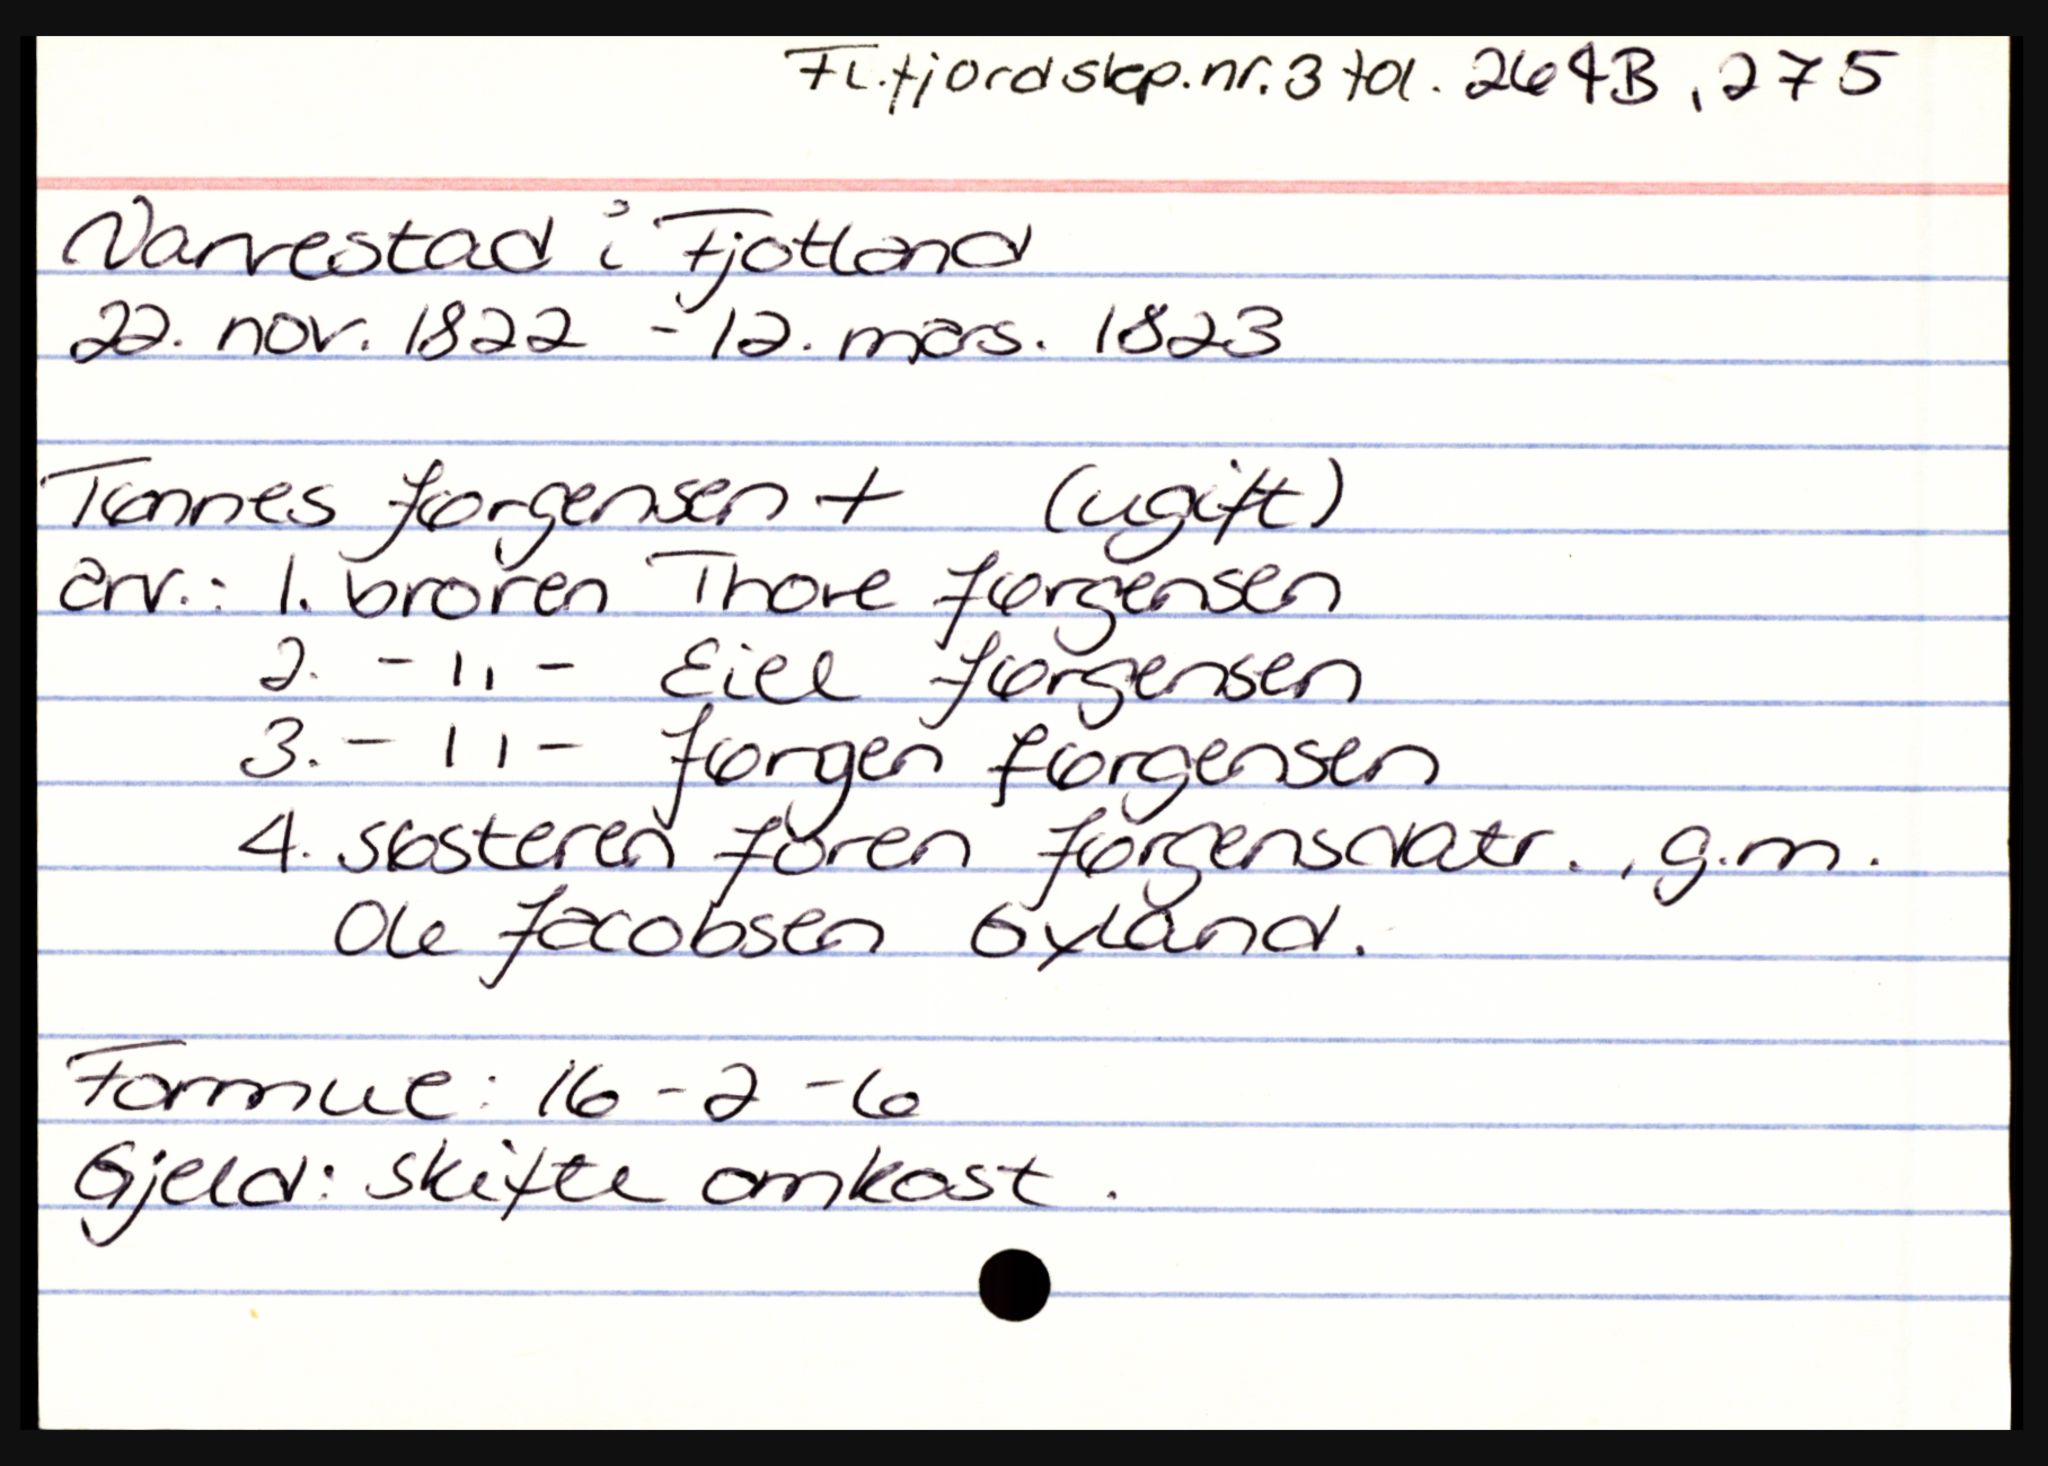 Fl.fjord skp.nr.3 fol. 264B, 275
Narvestad i Fjotland
22. nov. 1822 - 12. mars. 1823
Tønnes Jørgensen + (ugift)
arv.: 1. broren Thore Jørgensen
2. - " - Eiel Jørgensen
3. - " - Jørgen Jørgensen
4. søsteren Joren Jørgensdatr., g.m.
Ole Jacobsen Gyland.
Formue: 16 - 2 - 6
Gjeld: skifte omkost.